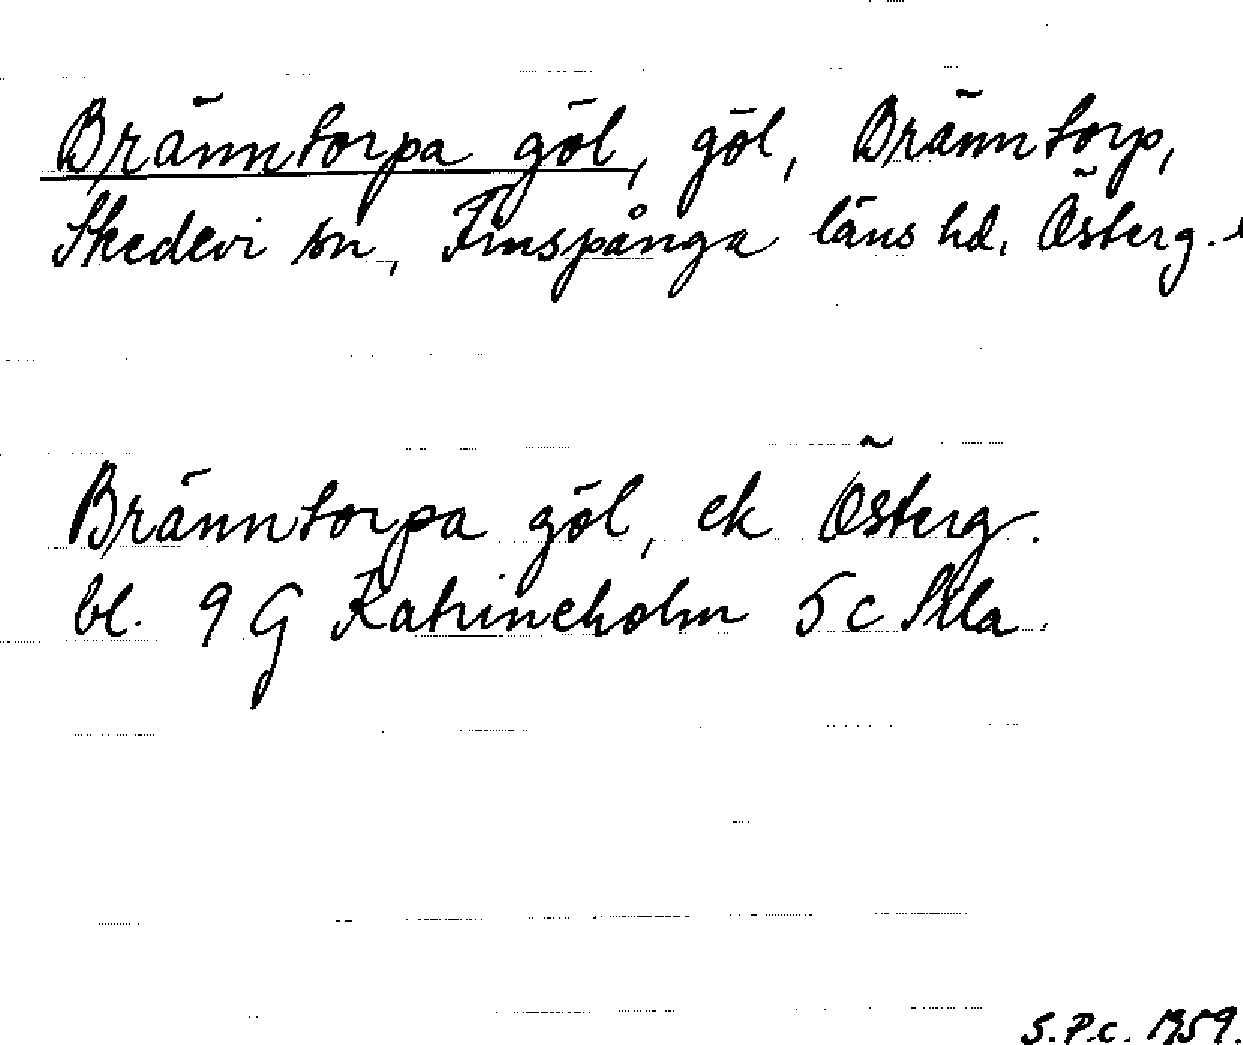 Bränntorpa göl, göl, Bränntorp,
Skedevi sn, Finspånga läns hd, Österg.
Bränntorpa göl, ek Österg.
bl. 9 G Katrineholm 5 c Skla.
S.P.C. 1959.